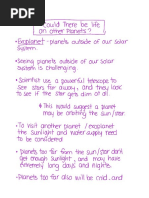 Could There be life
on other Planets?
• Exoplanet - planets outside of our solar
system.
• Seeing planets outside of our solar
system is challenging.
• Scientist use a powerful telescope to
see stars far away, and they look
to see if the star gets dim at all.
this would suggest a planet
may be orbiting the sun/star
• To visit another planet / exoplanet
the sunlight and water supply need
to be considered
• Planets too far from the sun/star don't
get enough Sunlight, and may have
extremely long days and nights.
• Planets too far also will be cold, and